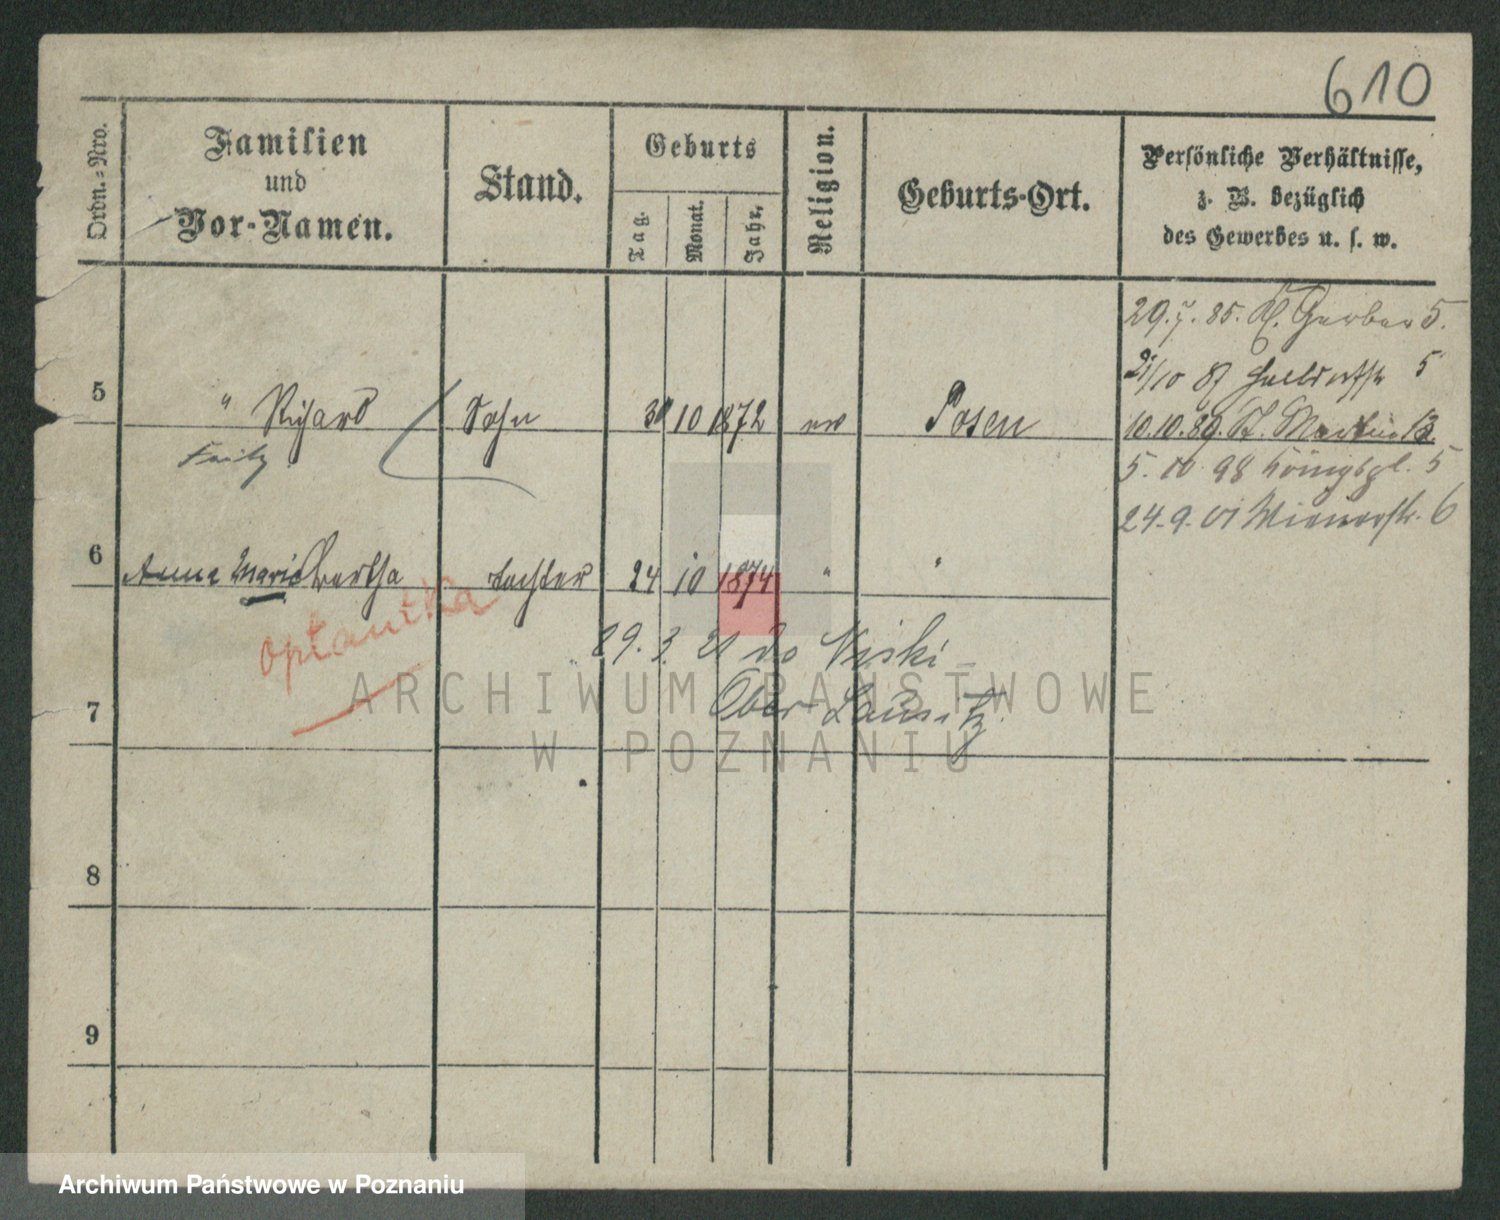 610
Ordn.-Nro.
Familien
und
Vor-Namen.
Stand.
Geburts
Tag.
Monat.
Jahr.
Religion.
Geburts-Ort.
Persönliche Verhältnisse,
z. B. bezüglich
des Gewerbes u. s. w.
29.7.85. Kl. Gerber 5.
21/10 87 Halbdorfstr 5
5 " Richard Sohn 30 10 1872 ev Posen
10.10.89. St. Martin 13.
Fritz
5. 10. 98 Königspl. 5
24.9.01 Wienerstr. 6
6 Anna Marie Bertha Tochter 24 10 1874 " "
optantka
29.3.21 do Niski
Ober Lausitz
7
8
9
ARCHIWUM PAŃSTWOWE
W POZNANIU
Archiwum Państwowe w Poznaniu